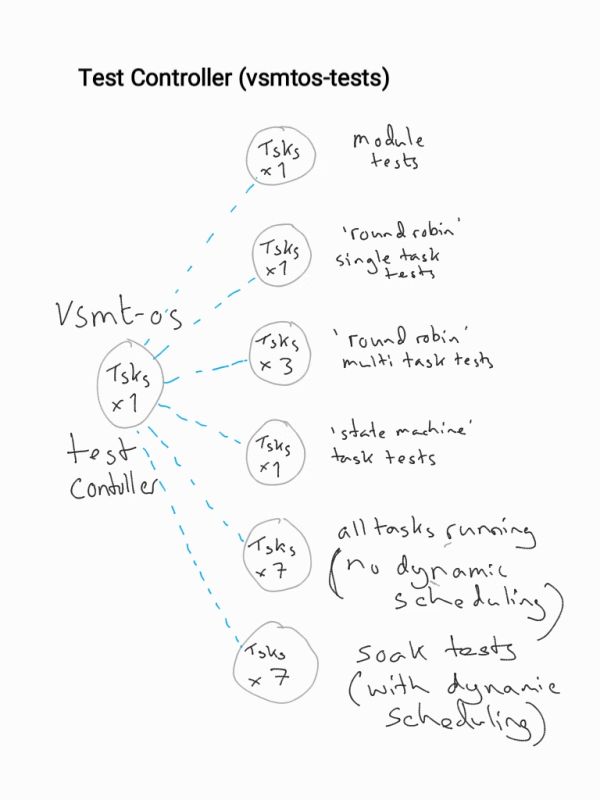 Test Controller (vsmtos-tests)
Tsks
x1
module
tests
Tsks
x1
'round robin'
single task
tests
Vsmt-os
Tsks
x1
test
Contuller
Tsks
x3
'round robin'
multi task tests
Tsks
x1
'state machine'
task tests
Tsks
x7
all tasks running
(no dynamic
scheduling)
Tsks
x7
soak tests
(with dynamic
scheduling)